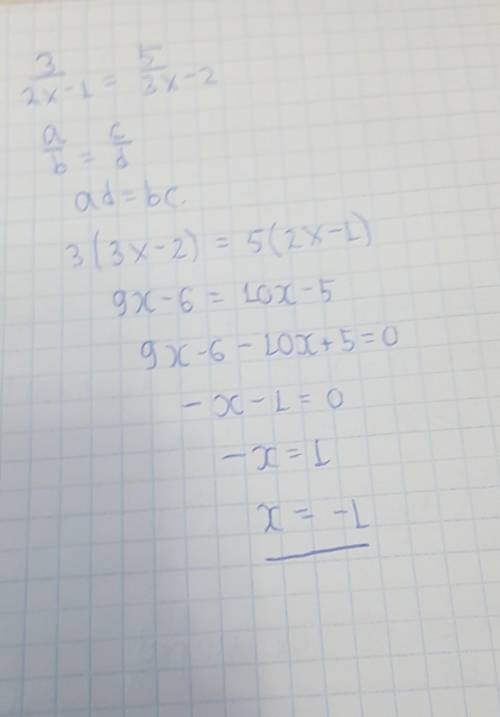 3/(2x-1) = 5/(3x-2)
a/b = c/d
ad = bc.
3(3x-2) = 5(2x-1)
9x-6 = 10x-5
9x-6-10x+5=0
-x-1=0
-x=1
x=-1